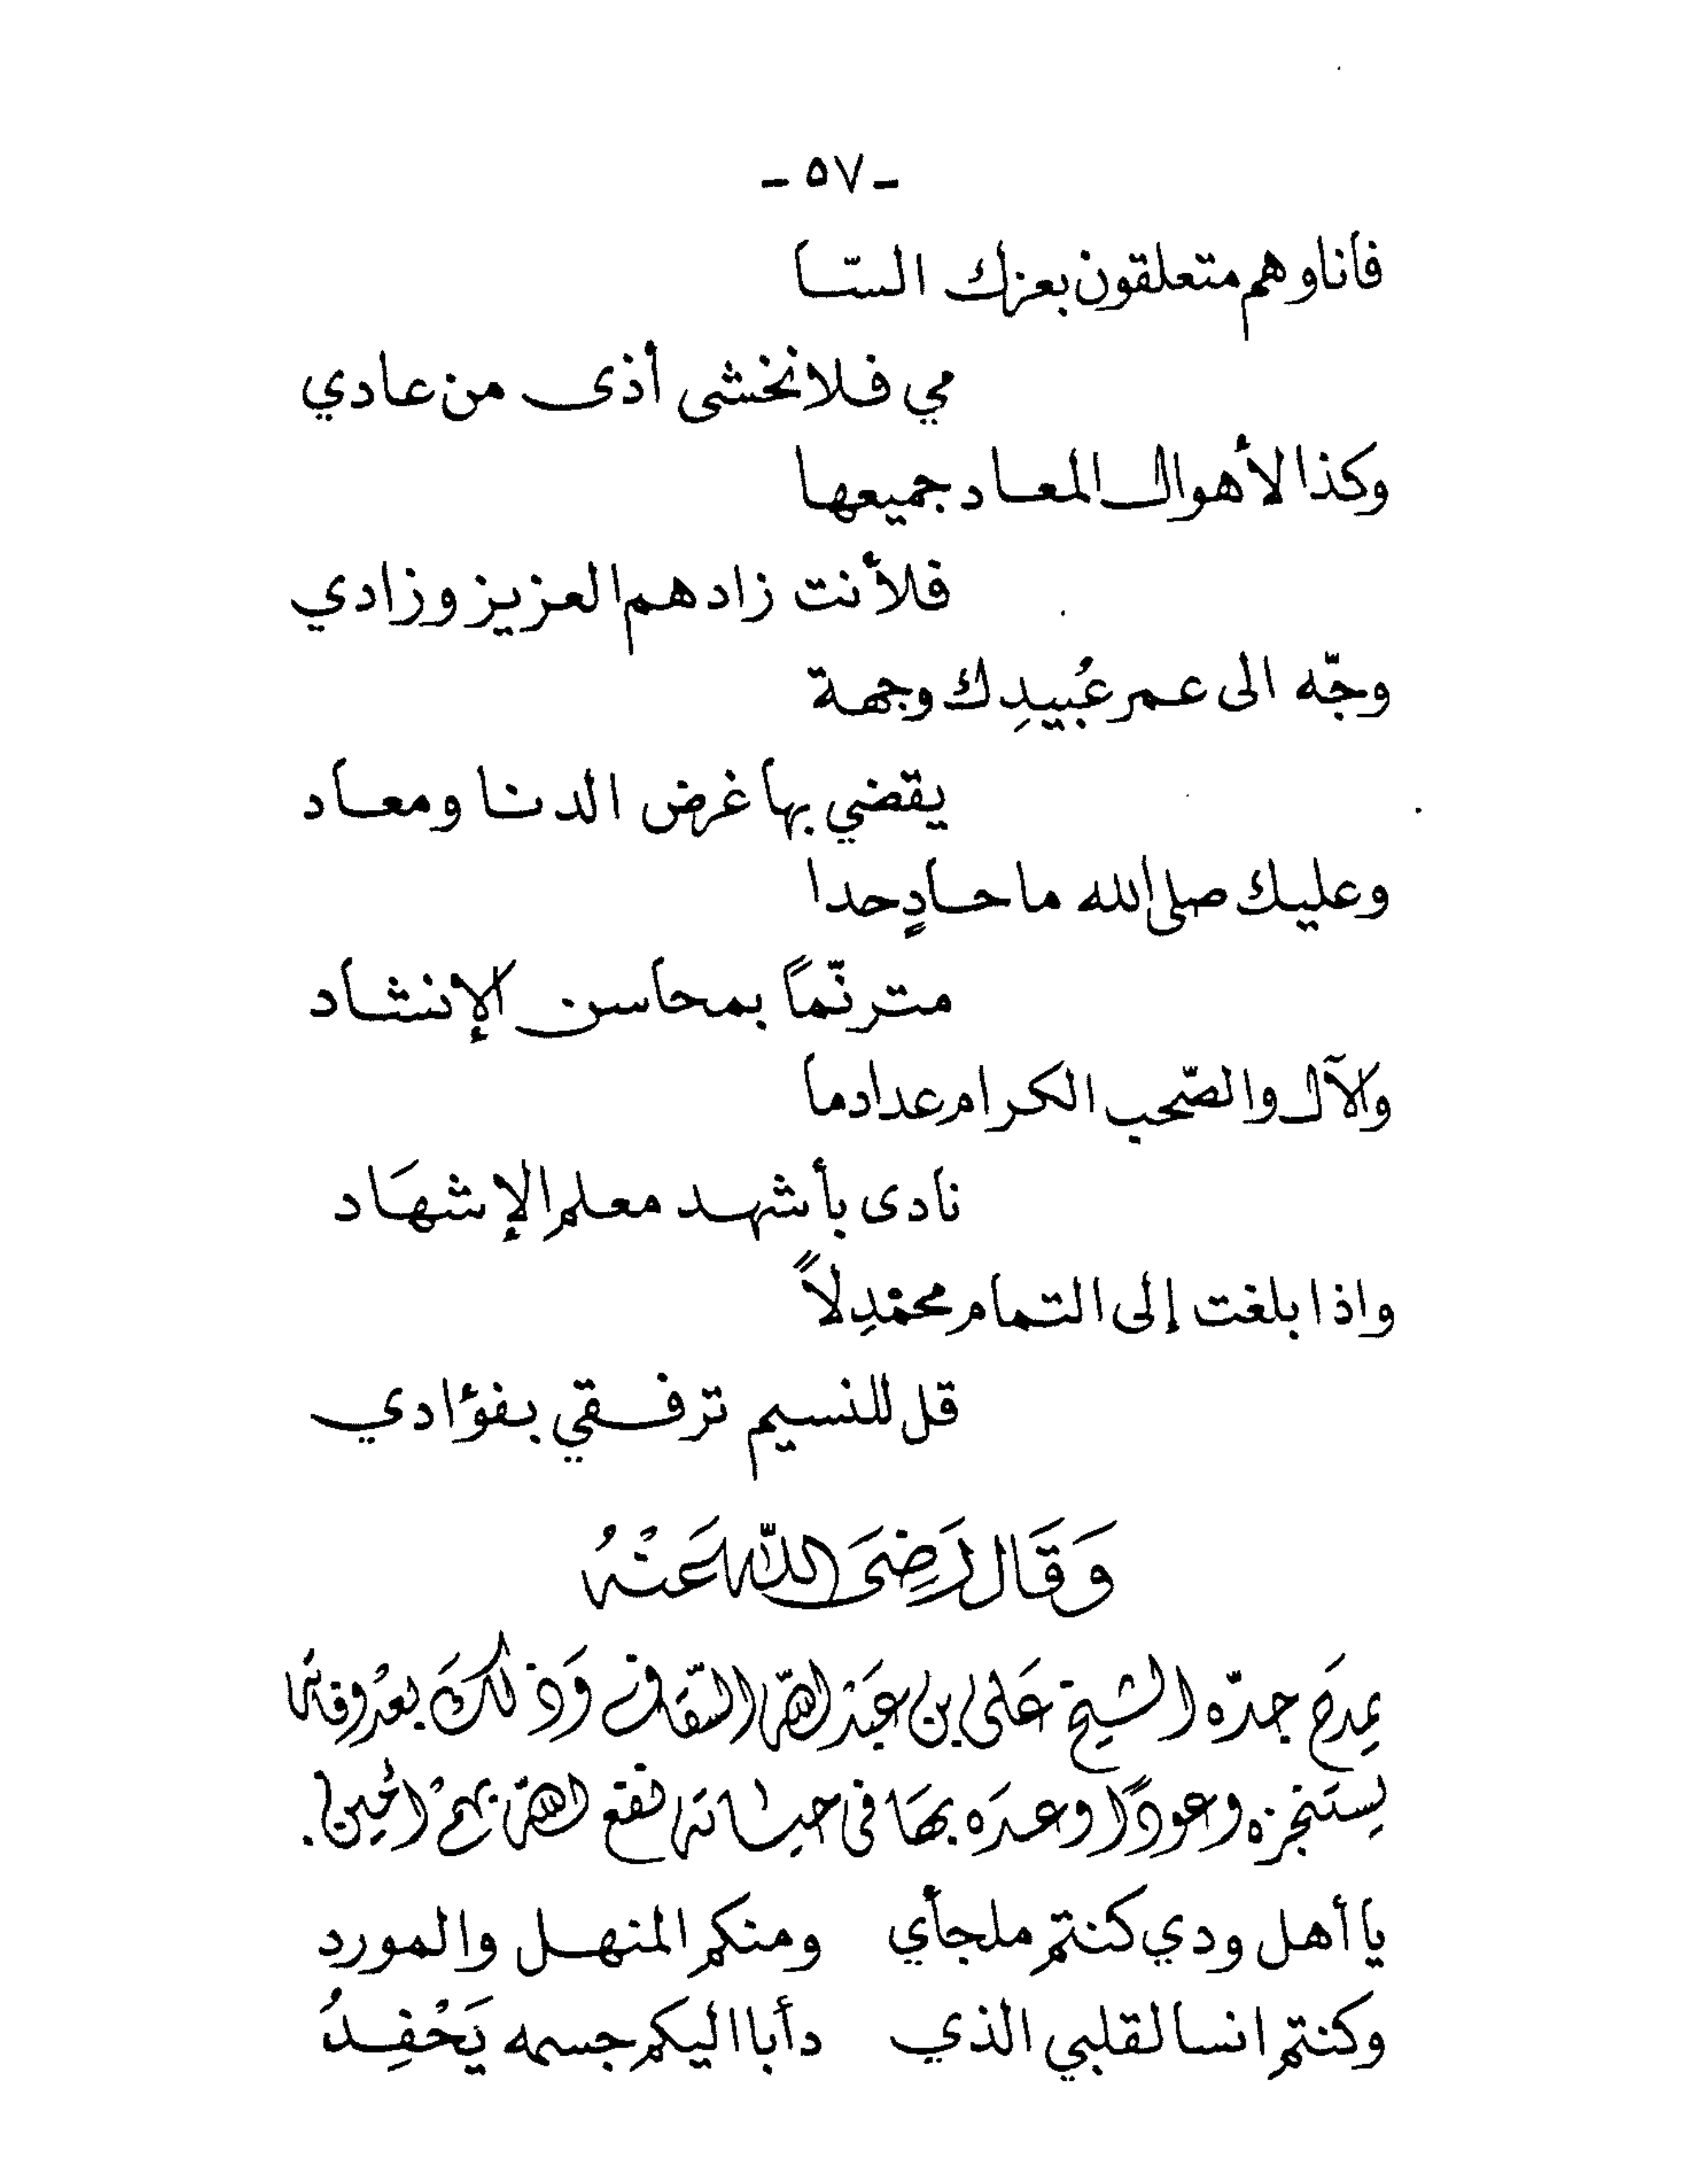 - ٥٧ -
فأنا وهم متعلقون بعزك السّا
مي فلا نخشى أذى من عادي
وكذا لأهوال المعاد جميعها
فلأنت زادهم العزيز وزادي
وجّه الى عمر عُبيدِك وجهة
يقضي بها غرض الدنا ومعاد
وعليك صلى الله ما حادٍ حدا
مترنّماً بمحاسن الإنشاد
والآل والصّحب الكرام عداد ما
نادى بأشهد معلم الإشهَاد
واذا بلغت إلى التمام محمْدِلاً
قل للنسيم ترفقي بفؤادي
وَقَال رَضِىَ اللّه عَنْهُ
يمدَح جدّه الشيخ عَلى بن عَبْد اللّه السّقاف وَذلكَ بعدْ وفاته
يستَنجزه وعودًا وعدَه بهَا فى حيَاته نفع اللّه بهمْ امين.
يا أهل ودي كنتم ملجأي ومنكم المنهل والمورد
وكنتم انسا لقلبي الذي دأبا اليكم جسمه يَحْفِدُ